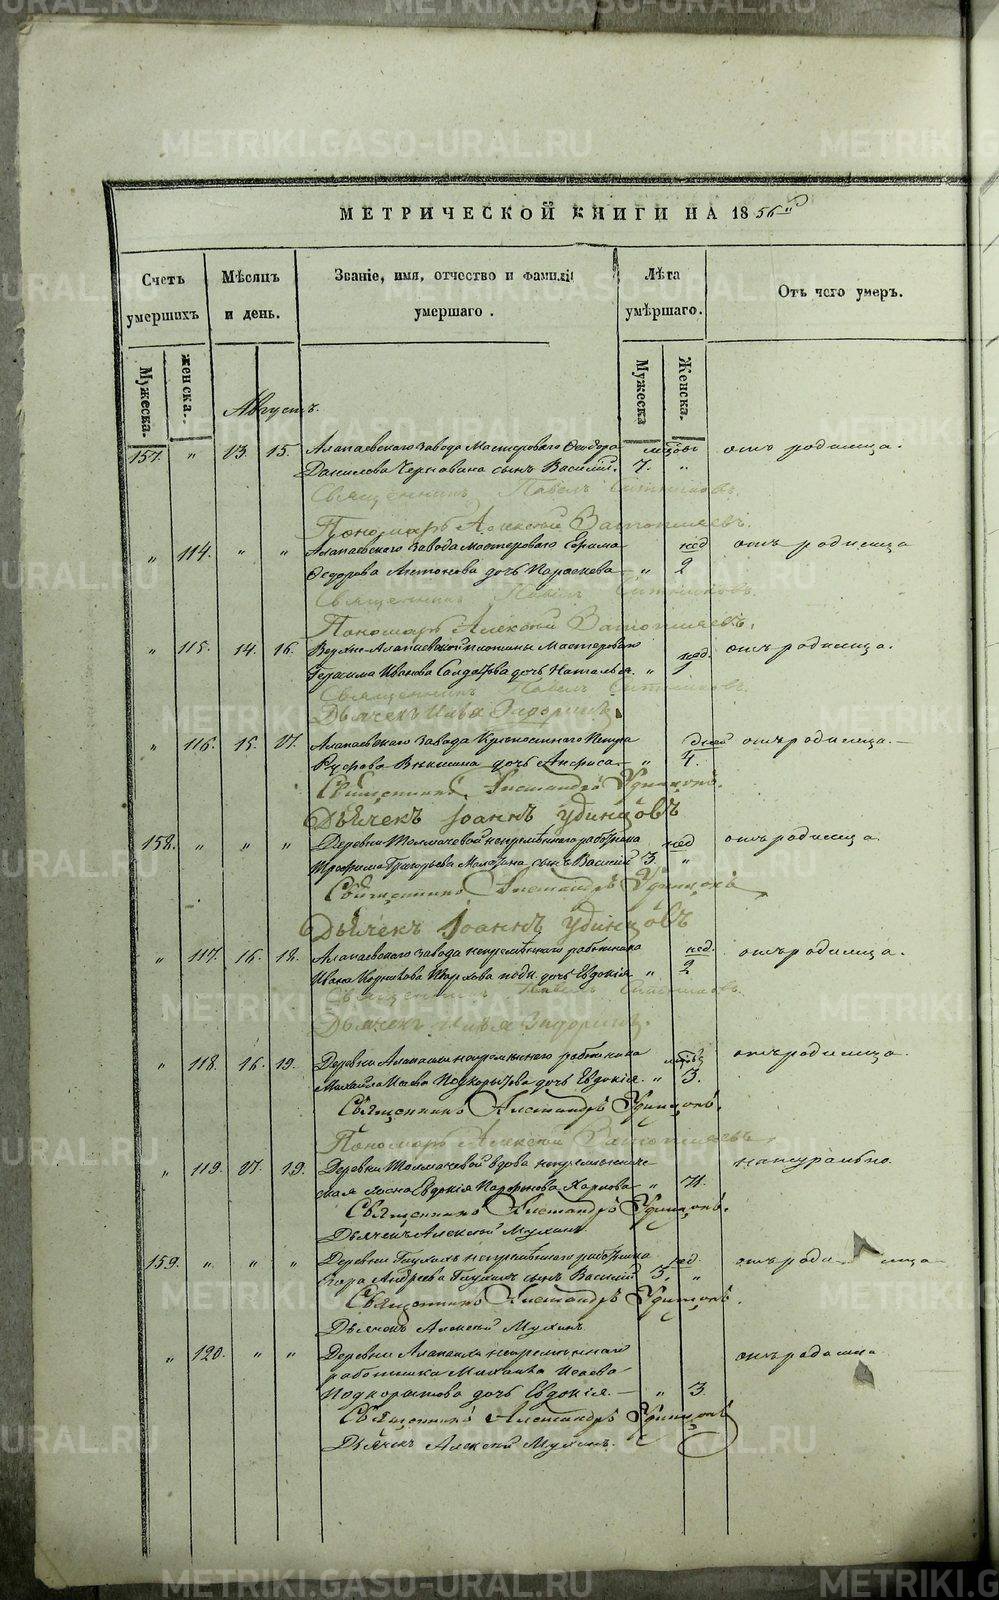 МЕТРИЧЕСКОЙ КНИГИ НА 1856й
Счетъ умершихъ
Мѣсяцъ и день.
Званіе, имя, отчество и фамилія умершаго.
Лѣта умершаго.
Отъ чего умеръ.
Мужеска.
женска.
Мужеска
Женска.
Августъ.
157. " 13. 15. Алапаевскаго завода Мастероваго Ѳеодора мѣсяцовъ отъ родимца.
Данилова Чернавина сынъ Василій. 7. "
Священникъ Павелъ Ситниковъ.
Пономарь Алексѣй Затопляевъ.
" 114. " " Алапаевскаго завода мастероваго Ефрема нед отъ родимца
Ѳедорова Антонова дочь Параскева " 2
Священникъ Павелъ Ситниковъ.
Пономарь Алексѣй Затопляевъ.
" 115. 14. 16. Верхне-Алапаевской Мастероваго нед. отъ родимца.
Герасима Иванова Солдатова дочь Наталья. "
Священникъ Павелъ Ситниковъ.
Дьячекъ Илья
" 116. 15. 17. Алапаевскаго завода Петра дней отъ родимца.
дочь Анфиса. " 4.
Священникъ Александръ Удинцовъ.
Дьячекъ Іоаннъ Удинцовъ
158. " " " Деревни Толмачевой непремѣннаго работника нед отъ родимца.
Трофима Григорьева сынъ Василій 3. "
Священникъ Александръ Удинцовъ
Дьячекъ Іоаннъ Удинцовъ
" 117. 16. 18. Алапаевскаго завода непремѣннаго работника нед. отъ родимца.
Ивана дочь Евдокія " 2
Священникъ Павелъ Ситниковъ.
Дьячекъ Илья
" 118. 16. 19. Деревни Алапаихи непремѣннаго работника отъ родимца.
Михайла Исаева Подкорытова дочь Евдокія. " 3.
Священникъ Александръ Удинцовъ.
Пономарь Алексѣй Затопляевъ
" 119. 17. 19. Деревни Толмачевой вдова натурально.
Евдокія "
Священникъ Александръ Удинцовъ.
Дьячекъ Алексѣй Мухинъ
159. " " " Деревни непремѣннаго работника нед отъ родимца
Егора Андреева сынъ Василій 5. "
Священникъ Александръ Удинцовъ.
Дьячекъ Алексѣй Мухинъ
" 120. " " Деревни Алапаихи непремѣннаго отъ родимца
работника Михаила Исаева
Подкорытова дочь Евдокія. " 3.
Священникъ Александръ Удинцовъ
Дьячекъ Алексѣй Мухинъ.
METRIKI.GASO-URAL.RU